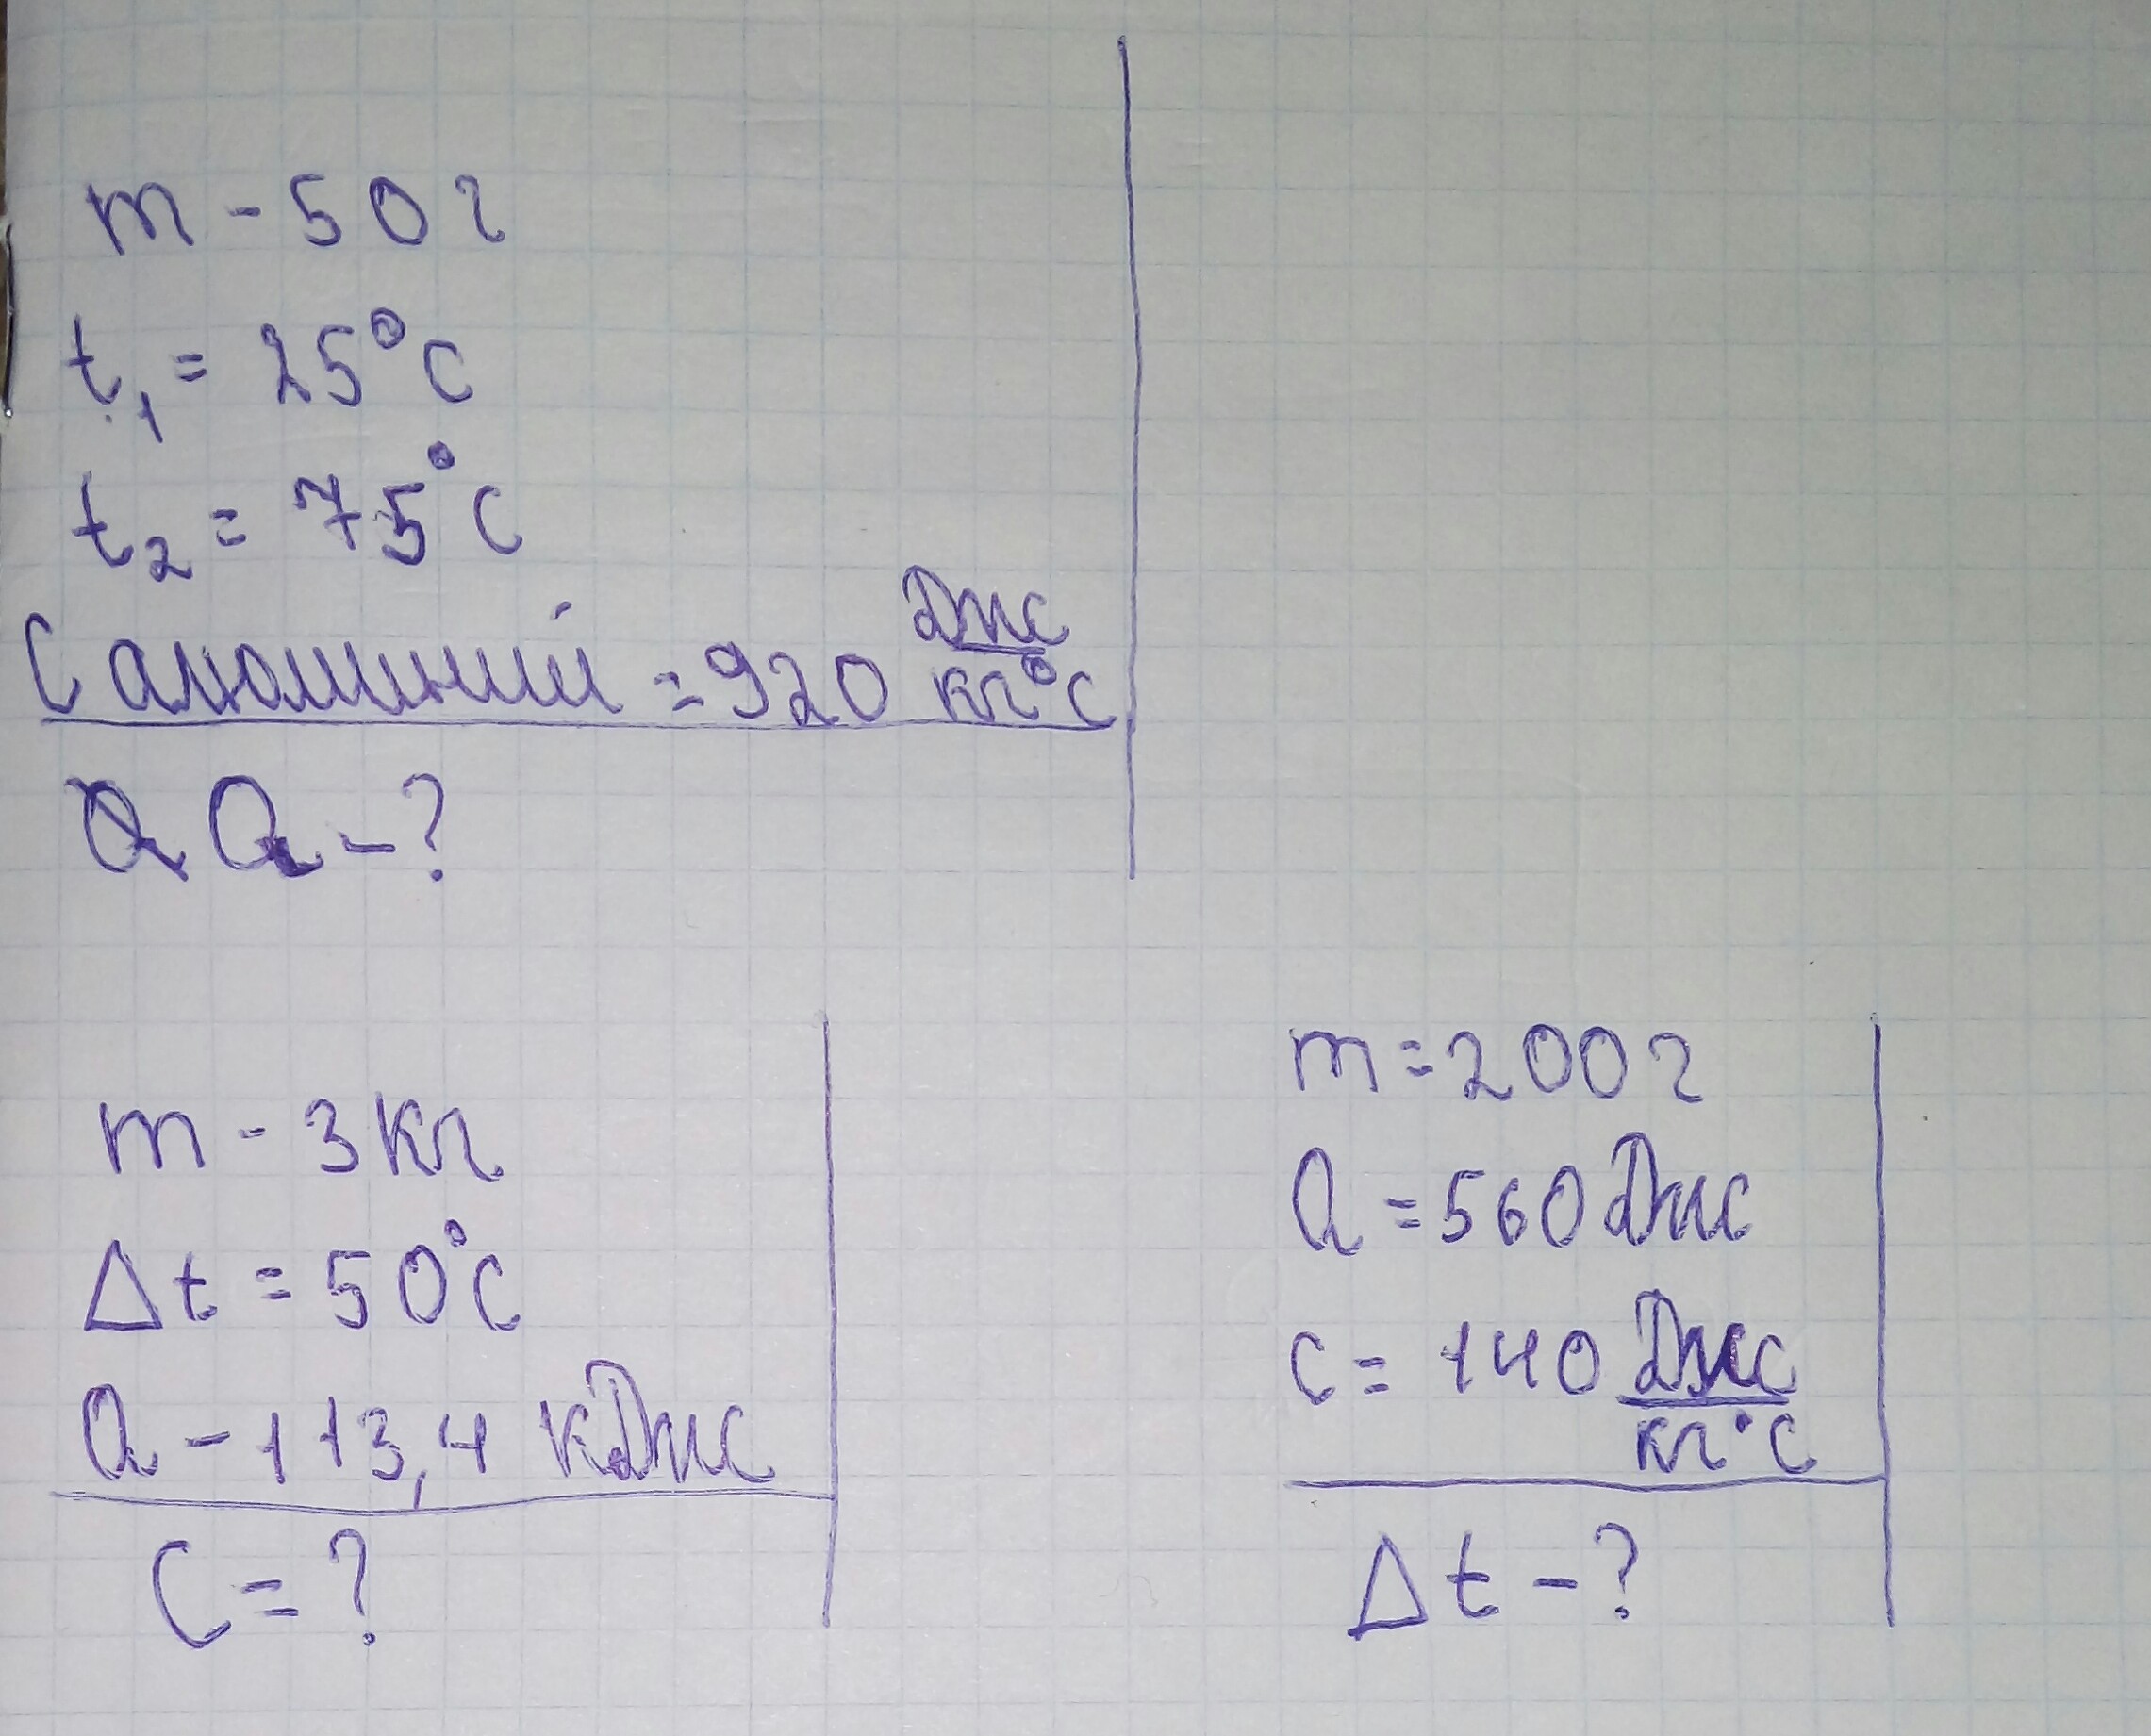 m - 50 г
t₁ = 25°C
t₂ = 75°C
C алюминий = 920 Дж/кг°C
Q - ?
m - 3 кг
Δt = 50°C
Q - 113,4 кДж
C = ?
m = 200 г
Q = 560 Дж
c = 140 Дж/кг°C
Δt - ?